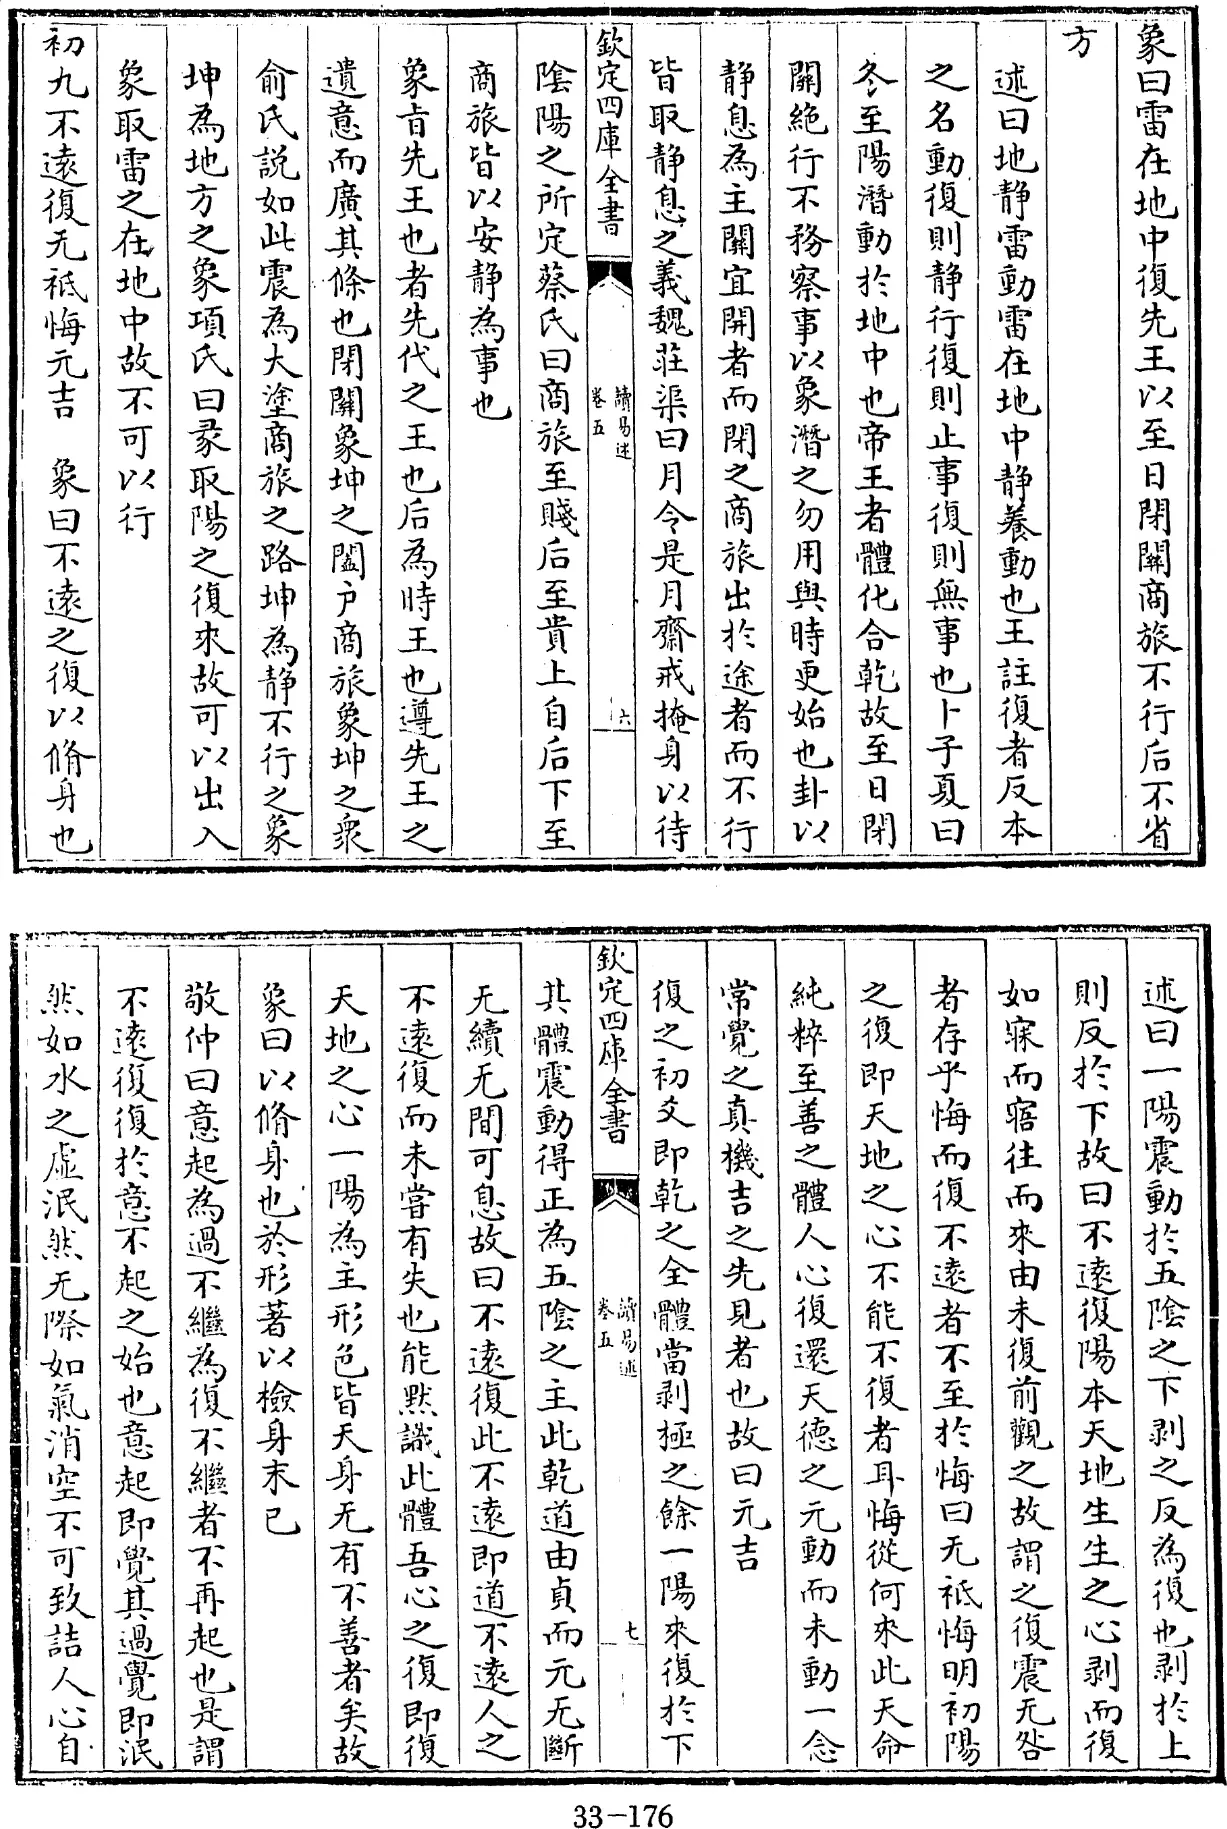 象曰雷在地中復先王以至日閉關商旅不行后不省
方
述曰地静雷動雷在地中静養動也王註復者反本
之名動復則静行復則止事復則無事也卜子夏曰
冬至陽潛動於地中也帝王者體化合乾故至日閉
關絶行不務察事以象潛之勿用與時更始也卦以
静息為主關宜開者而閉之商旅出於途者而不行
皆取静息之義魏莊渠曰月令是月齋戒掩身以待
欽定四庫全書
讀易述
卷五
六
陰陽之所定蔡氏曰商旅至賤后至貴上自后下至
商旅皆以安静為事也
象旨先王也者先代之王也后為時王也遵先王之
遺意而廣其條也閉關象坤之闔户商旅象坤之衆
俞氏説如此震為大塗商旅之路坤為静不行之象
坤為地方之象項氏曰彖取陽之復來故可以出入
象取雷之在地中故不可以行
初九不遠復无祗悔元吉 象曰不遠之復以脩身也
述曰一陽震動於五陰之下剥之反為復也剥於上
則反於下故曰不遠復陽本天地生生之心剥而復
如寐而寤往而來由未復前觀之故謂之復震无咎
者存乎悔而復不遠者不至於悔曰无祗悔明初陽
之復即天地之心不能不復者耳悔從何來此天命
純粹至善之體人心復還天德之元動而未動一念
常覺之真機吉之先見者也故曰元吉
復之初爻即乾之全體當剥極之餘一陽來復於下
欽定四庫全書
讀易述
卷五
七
其體震動得正為五陰之主此乾道由貞而元无斷
无續无間可息故曰不遠復此不遠即道不遠人之
不遠復而未嘗有失也能默識此體吾心之復即復
天地之心一陽為主形色皆天身无有不善者矣故
象曰以脩身也於形著以檢身末已
敬仲曰意起為過不繼為復不繼者不再起也是謂
不遠復復於意不起之始也意起即覺其過覺即泯
然如水之虛泯然无際如氣消空不可致詰人心自
33-176